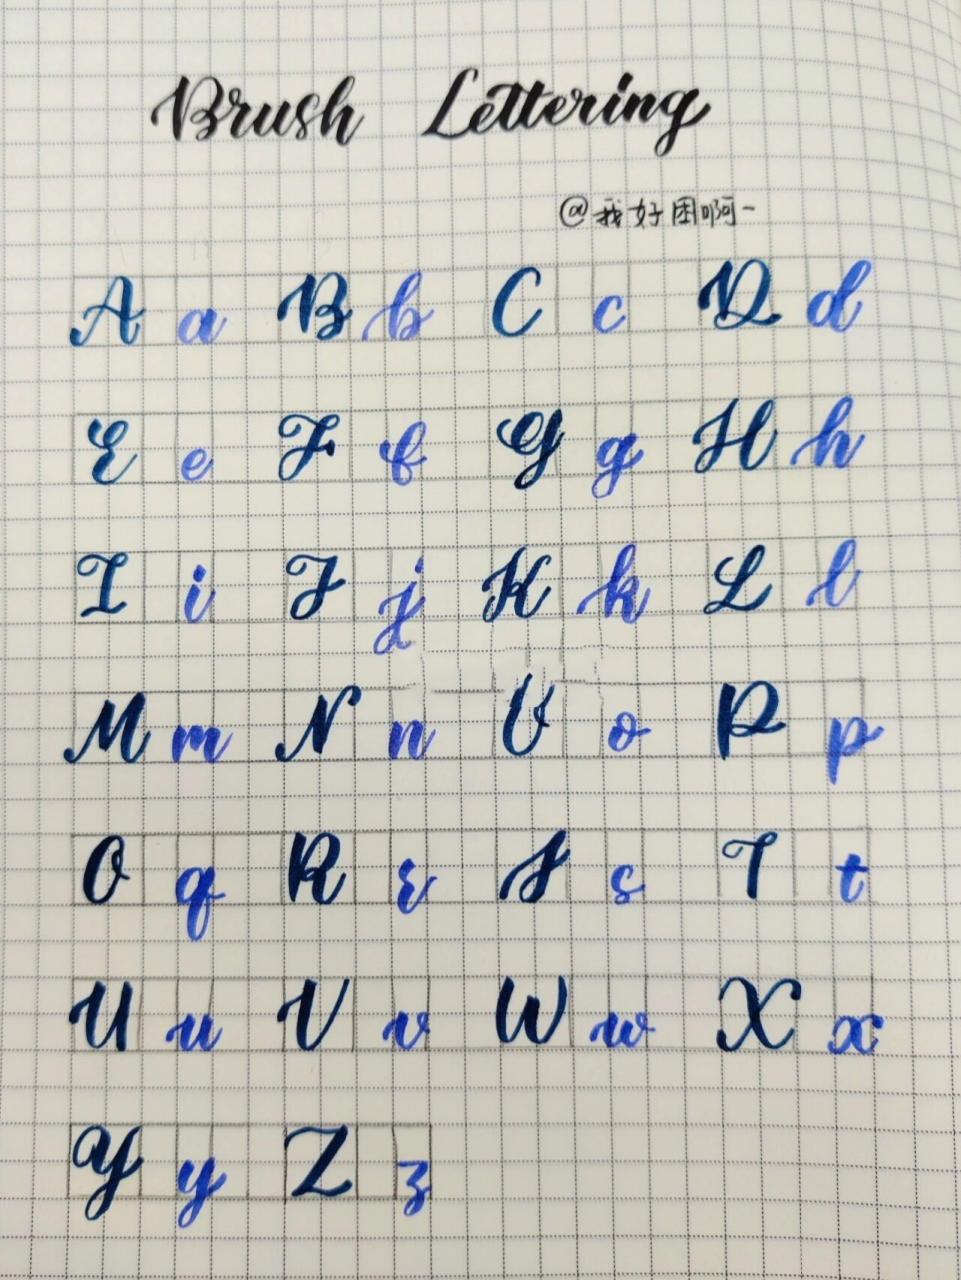 Brush Lettering
@我好困啊一
A a B b C c D d
E e F f G g H h
I i J j K k L l
M m N n O o P p
Q q R r S s T t
U u V v W w X x
Y y Z z